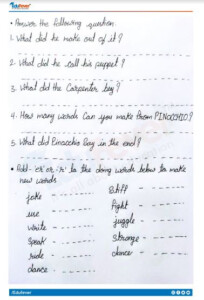 Edufever
• Answer the following question
1. What did he make out of it?
2. What did he call his puppet?
3. What did the Carpenter say?
4. How many words Can you make from PINOCCHIO?
5. What did Pinocchio Say in the end?
• Add -'er' or -'r' to the doing words below to make new words
joke
use
write
speak
ride
dance
Stiff
fight
juggle
Strange
dance
Edufever